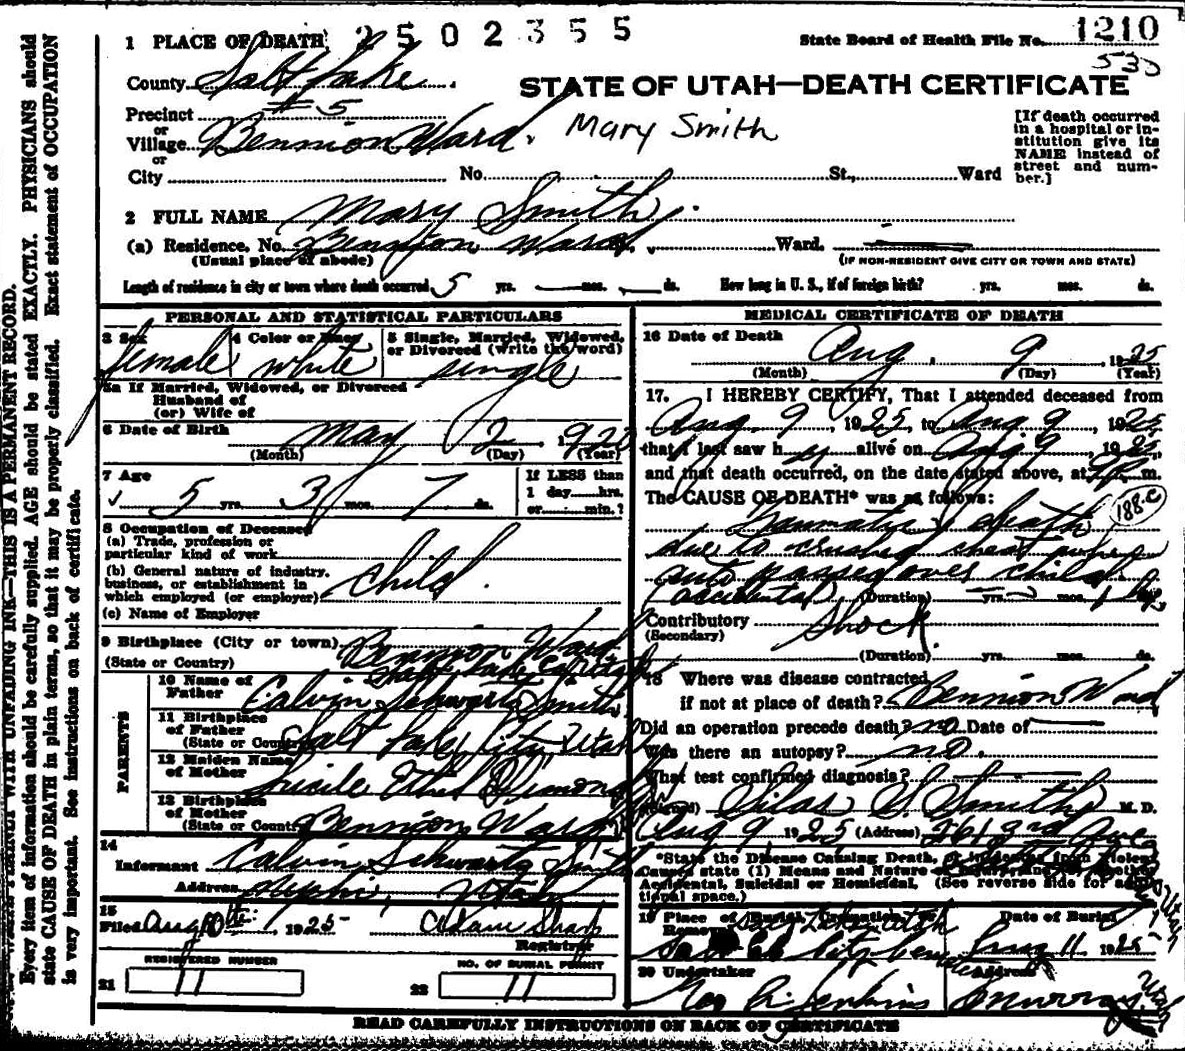 2502355
State Board of Health File No. 1210
535
1 PLACE OF DEATH
County Salt Lake
STATE OF UTAH—DEATH CERTIFICATE
Precinct #5
or
Village Bennion Ward. Mary Smith
or
City No. St., Ward
[If death occurred
in a hospital or in-
stitution give its
NAME instead of
street and num-
ber.]
2 FULL NAME Mary Smith
(a) Residence. No. Bennion Ward. Ward.
(Usual place of abode) (IF NON-RESIDENT GIVE CITY OR TOWN AND STATE)
Length of residence in city or town where death occurred 5 yrs. — mos. — ds. How long in U. S., if of foreign birth? yrs. mos. ds.
PERSONAL AND STATISTICAL PARTICULARS
3 Sex 4 Color or Race 5 Single, Married, Widowed,
or Divorced (write the word)
female white single
5a If Married, Widowed, or Divorced
Husband of
(or) Wife of
6 Date of Birth May 2 1920
(Month) (Day) (Year)
7 Age 5 yrs. 3 mos. 7 ds.
If LESS than
1 day hrs.
or min.?
8 Occupation of Deceased
(a) Trade, profession or
particular kind of work
(b) General nature of industry,
business, or establishment in
which employed (or employer) Child
(c) Name of Employer
9 Birthplace (City or town) Bennion Ward
(State or Country) Salt Lake Co. Utah
PARENTS
10 Name of
Father Calvin Schwartz Smith
11 Birthplace
of Father
(State or Country) Salt Lake City Utah
12 Maiden Name
of Mother Lucile Ethel Dimond
13 Birthplace
of Mother
(State or Country) Bennion Ward
14
Informant Calvin Schwartz Smith
Address Nephi, Utah
15
Filed Aug 10th 1925 Adam Sharp
Registrar
REGISTERED NUMBER NO. OF BURIAL PERMIT
21 11 22 11
MEDICAL CERTIFICATE OF DEATH
16 Date of Death Aug. 9 1925
(Month) (Day) (Year)
17. I HEREBY CERTIFY, That I attended deceased from
Aug 9, 1925, to Aug 9, 1925,
that I last saw her alive on Aug 9, 1925,
and that death occurred, on the date stated above, at m.
The CAUSE OF DEATH* was as follows:
188-c
Traumatic death
due to crushed chest when
auto passed over child
(accidental) (Duration) yrs. mos. 1
Contributory Shock
(Secondary)
(Duration) yrs. mos. ds.
18 Where was disease contracted
if not at place of death? Bennion Ward
Did an operation precede death? no Date of
Was there an autopsy? no.
What test confirmed diagnosis?
(Signed) Silas S. Smith M. D.
Aug 9 1925 (Address) 261 3rd Ave
*State the Disease Causing Death, or in deaths from Violent
Causes state (1) Means and Nature of Injury; and (2) whether
Accidental, Suicidal or Homicidal. (See reverse side for addi-
tional space.)
19 Place of Burial, Cremation, or
Removal Salt Lake City Cemetery
Date of Burial
Aug 11 1925
20 Undertaker Address
Geo A. Jenkins Murray Utah
READ CAREFULLY INSTRUCTIONS ON BACK OF CERTIFICATE
WRITE PLAINLY WITH UNFADING INK—THIS IS A PERMANENT RECORD.
Every item of information should be carefully supplied. AGE should be stated EXACTLY. PHYSICIANS should
state CAUSE OF DEATH in plain terms, so that it may be properly classified. Exact statement of OCCUPATION
is very important. See instructions on back of certificate.